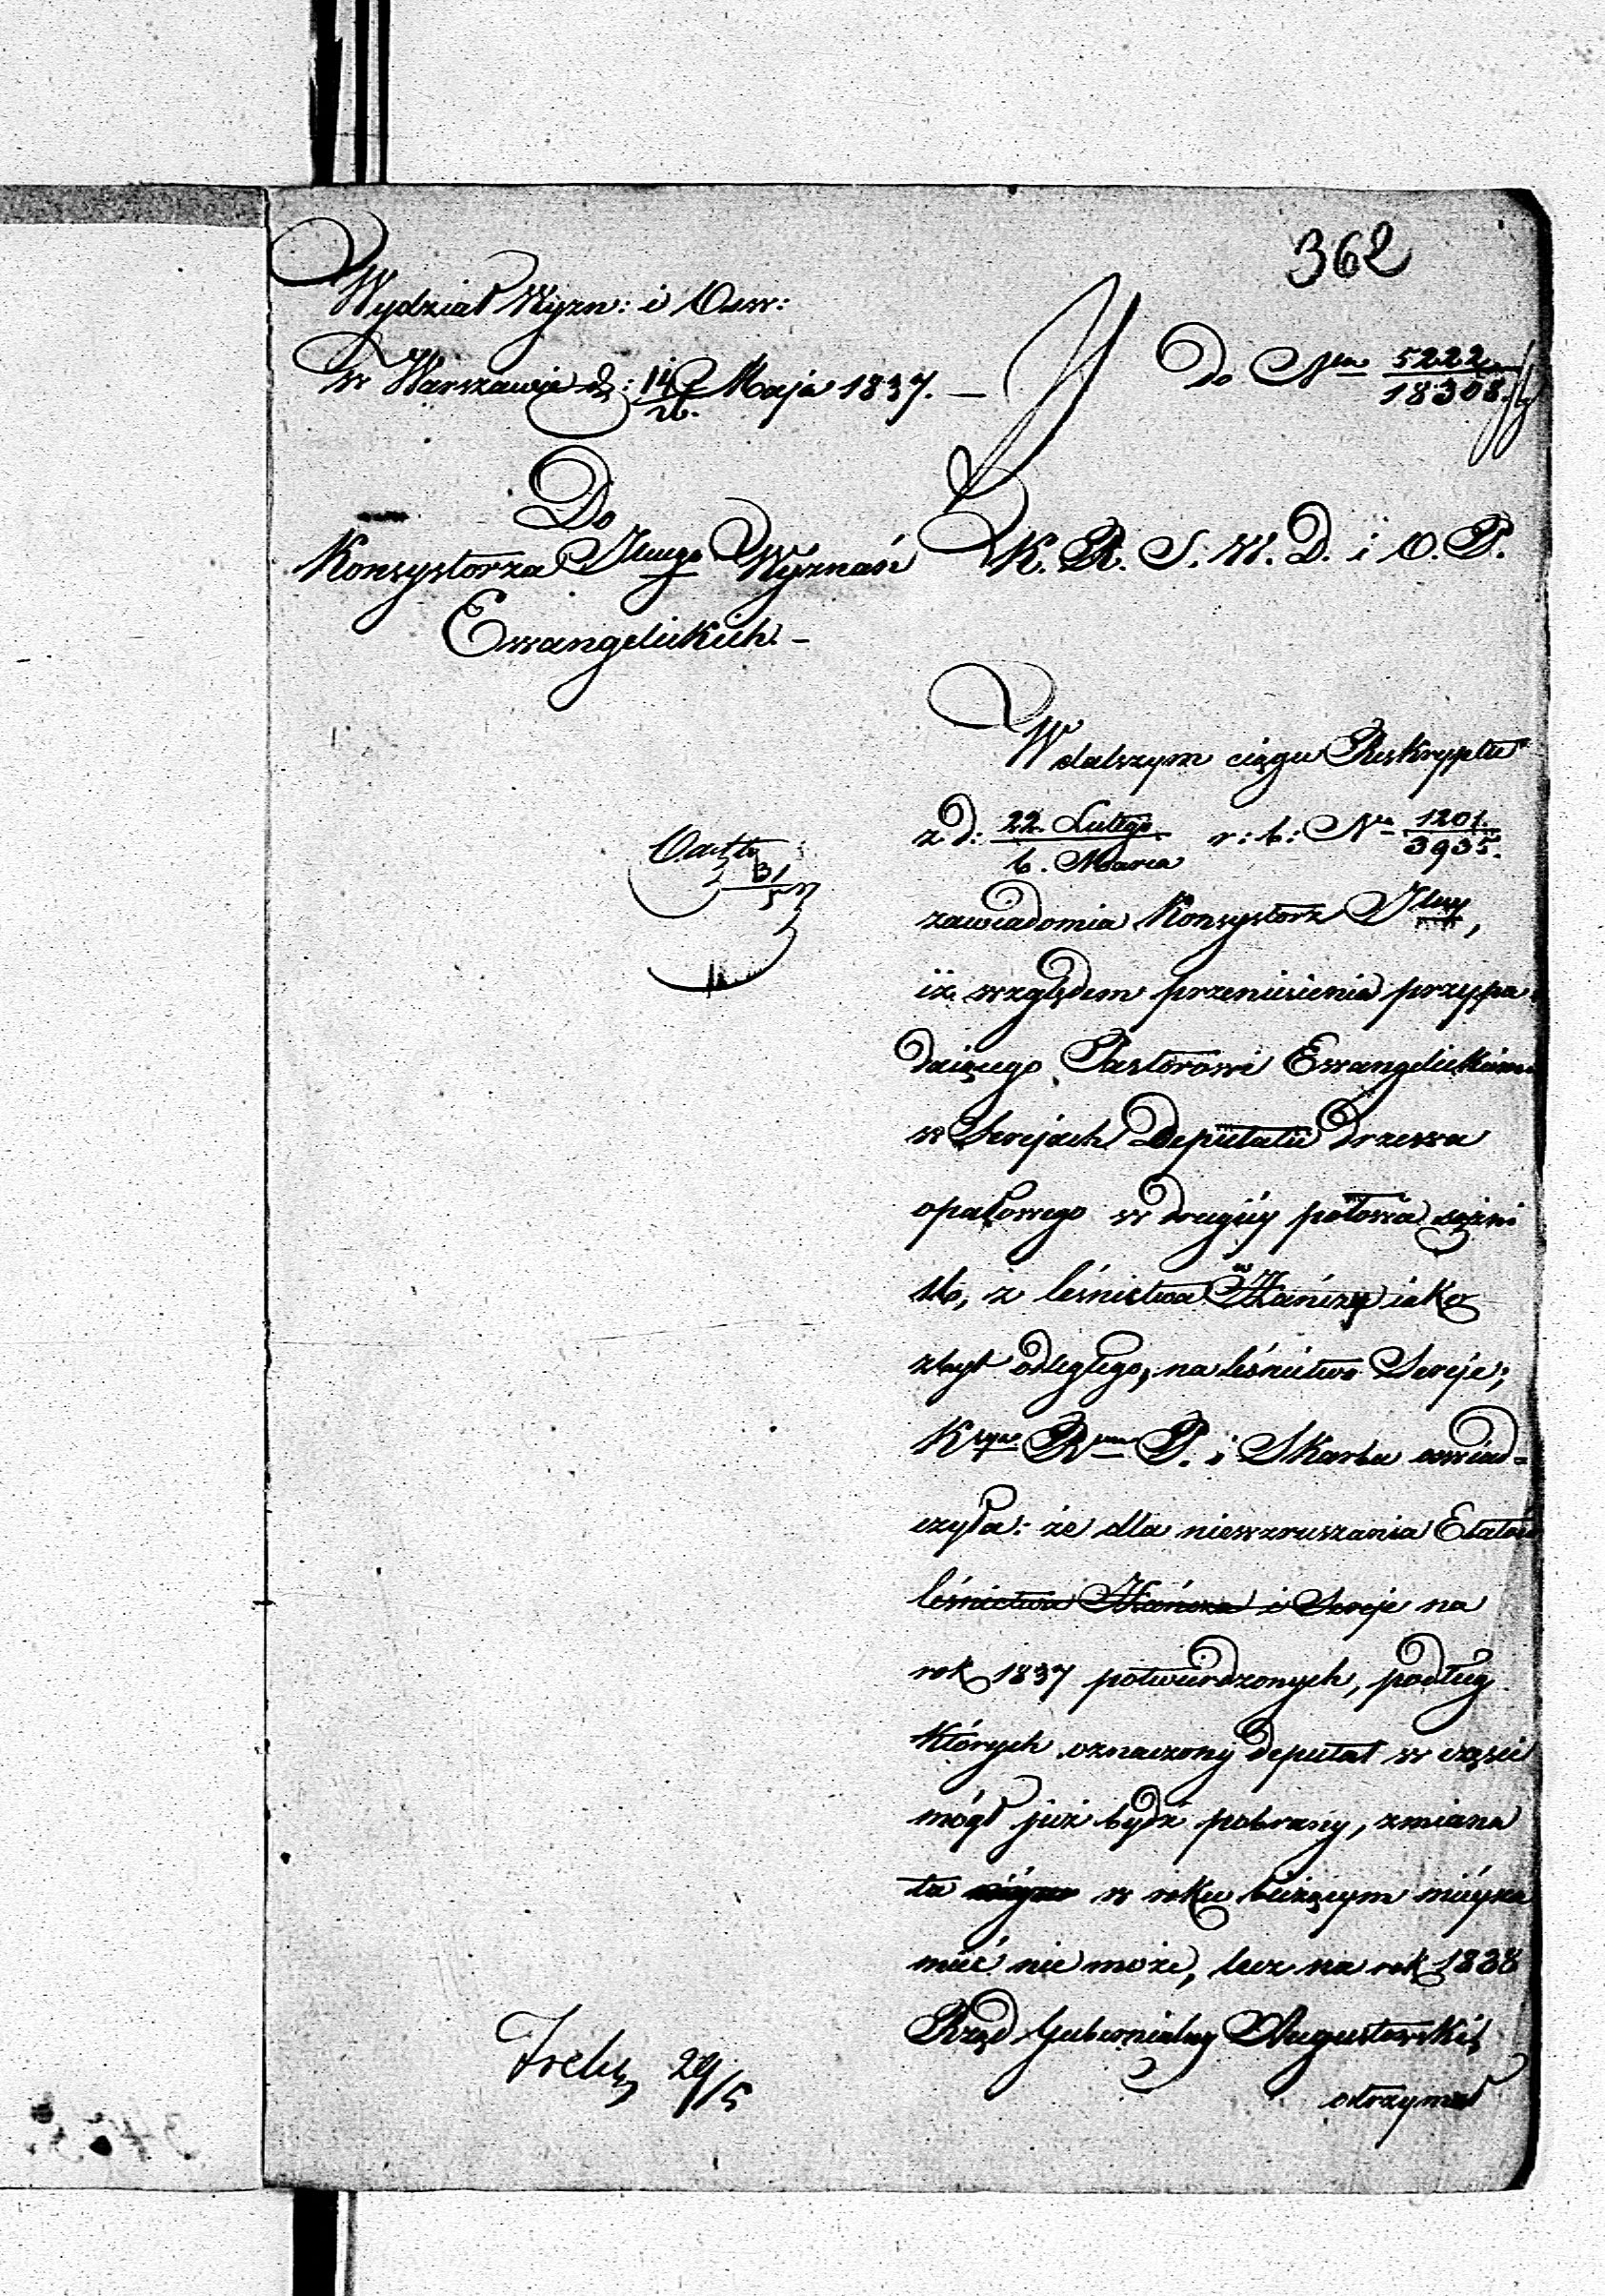 362
Wydział Wyzn: i Ośw:
w Warszawie d: 14/26. Maja 1837. —
Do Nru 5222/18308.
Do
Konsystorza Jlnego Wyznań
Ewangelickich. –
K. R. S. W. D. i O. P.
W dalszym ciągu Reskryptu
z d: 22. Lutego/6. Marca r: b: Nro 1201./3935.
zawiadomia Konsystorz Jlny,
iż względem przeniesienia przypa
daiącego Pastorowi Ewangelickiemu
w Serejach Deputatu drzewa
opałowego w drugiéy połowie sążni
16, z leśnictwa w Hańczy iako
zbyt odległego, na leśnictwo Sereje;
Kssya Rwa P. i Skarbu oświad=
czyła: że dla niewzruszania Etatów
leśnictwa Hańcza i Sereje na
rok 1837 potwierdzonych, podług
których oznaczony deputat w części
mógł już bydź pobrany, zmiana
ta w roku bieżącym mieysca
mieć nie może, lecz na rok 1838
Rząd Gubernialny Augustowski,
otrzymał
31/5
29/5